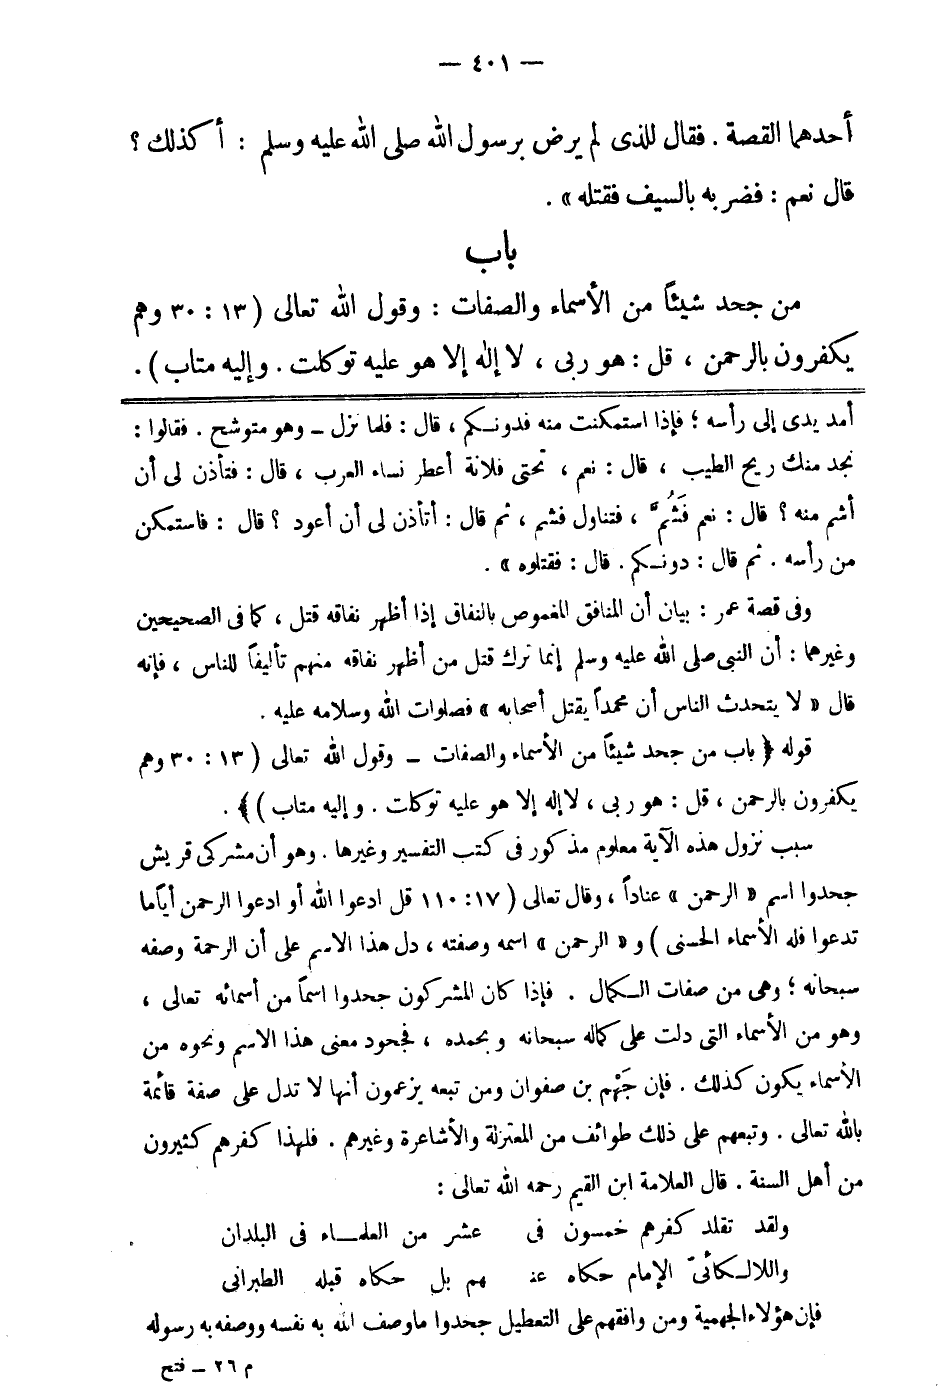 — ٤٠١ —
أحدهما القصة . فقال للذى لم يرض برسول الله صلى الله عليه وسلم : أ كذلك ؟
قال نعم : فضربه بالسيف فقتله » .
باب
من جحد شيئاً من الأسماء والصفات : وقول الله تعالى ( ١٣ : ٣٠ وهم
يكفرون بالرحمن ، قل : هو ربى ، لا إله إلا هو عليه توكلت . وإليه متاب ) .
أمد يدى إلى رأسه ؛ فإذا استمكنت منه فدونكم ، قال : فلما نزل ــ وهو متوشح . فقالوا :
نجد منك ريح الطيب ، قال : نعم ، تحتى فلانة أعطر نساء العرب ، قال : فتأذن لى أن
أشم منه ؟ قال : نعم فَشُمَّ ، فتناول فشم ، ثم قال : أتأذن لى أن أعود ؟ قال : فاستمكن
من رأسه . ثم قال : دونكم . قال : فقتلوه » .
وفى قصة عمر : بيان أن المنافق المغموص بالنفاق إذا أظهر نفاقه قتل ، كما فى الصحيحين
وغيرهما : أن النبى صلى الله عليه وسلم إنما ترك قتل من أظهر نفاقه منهم تأليفاً للناس ، فإنه
قال « لا يتحدث الناس أن محمداً يقتل أصحابه » فصلوات الله وسلامه عليه .
قوله ﴿ باب من جحد شيئاً من الأسماء والصفات ــ وقول الله تعالى ( ١٣ : ٣٠ وهم
يكفرون بالرحمن ، قل : هو ربى ، لا إله إلا هو عليه توكلت . وإليه متاب ) ﴾ .
سبب نزول هذه الآية معلوم مذكور فى كتب التفسير وغيرها . وهو أن مشركى قريش
جحدوا اسم « الرحمن » عناداً ، وقال تعالى ( ١٧ : ١١٠ قل ادعوا الله أو ادعوا الرحمن أياًما
تدعوا فله الأسماء الحسنى ) و « الرحمن » اسمه وصفته ، دل هذا الاسم على أن الرحمة وصفه
سبحانه ؛ وهى من صفات الكمال . فإذا كان المشركون جحدوا اسماً من أسمائه تعالى ،
وهو من الأسماء التى دلت على كماله سبحانه وبحمده ، فجحود معنى هذا الاسم ونحوه من
الأسماء يكون كذلك . فإن جَهْم بن صفوان ومن تبعه يزعمون أنها لا تدل على صفة قائمة
بالله تعالى . وتبعهم على ذلك طوائف من المعتزلة والأشاعرة وغيرهم . فلهذا كفرهم كثيرون
من أهل السنة . قال العلامة ابن القيم رحمه الله تعالى :
ولقد تقلد كفرهم خمسون فى عشر من العلماء فى البلدان
واللالكائىّ الإمام حكاه عنـ ـهم بل حكاه قبله الطبرانى
فإن هؤلاء الجهمية ومن وافقهم على التعطيل جحدوا ما وصف الله به نفسه ووصفه به رسوله
م ٢٦ ــ فتح